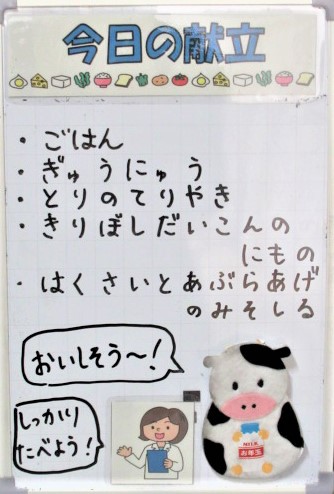 今日の献立
・ごはん
・ぎゅうにゅう
・とりのてりやき
・きりぼしだいこんの
にもの
・はくさいとあぶらあげ
のみそしる
おいしそう〜!
しっかり
たべよう!
MILK
お年玉